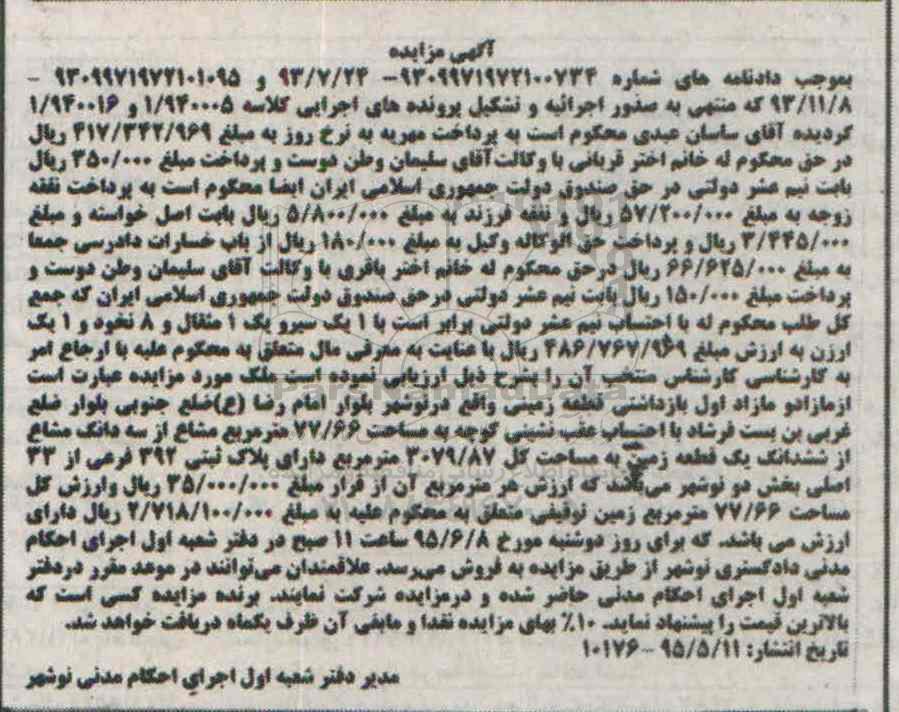 آگهی مزایده
بموجب دادنامه های شماره ۹۳۰۹۹۷۱۹۷۲۱۰۰۷۳۴– ۹۳/۷/۲۴ و ۹۳۰۹۹۷۱۹۷۲۱۰۱۰۹۵ –
۹۳/۱۱/۸ که منتهی به صدور اجرائیه و تشکیل پرونده های اجرایی کلاسه ۱/۹۴۰۰۰۵ و ۱/۹۴۰۰۱۶
گردیده آقای ساسان عبدی محکوم است به پرداخت مهریه به نرخ روز به مبلغ ۴۱۷/۳۴۲/۹۶۹ ریال
در حق محکوم له خانم اختر قربانی با وکالت آقای سلیمان وطن دوست و پرداخت مبلغ ۳۵۰/۰۰۰ ریال
بابت نیم عشر دولتی در حق صندوق دولت جمهوری اسلامی ایران ایضا محکوم است به پرداخت نفقه
زوجه به مبلغ ۵۷/۲۰۰/۰۰۰ ریال و نفقه فرزند به مبلغ ۵/۸۰۰/۰۰۰ ریال بابت اصل خواسته و مبلغ
۳/۴۴۵/۰۰۰ ریال و پرداخت حق الوکاله وکیل به مبلغ ۱۸۰/۰۰۰ ریال از باب خسارات دادرسی جمعا
به مبلغ ۶۶/۶۲۵/۰۰۰ ریال درحق محکوم له خانم اختر باقری با وکالت آقای سلیمان وطن دوست و
پرداخت مبلغ ۱۵۰/۰۰۰ ریال بابت نیم عشر دولتی درحق صندوق دولت جمهوری اسلامی ایران که جمع
کل طلب محکوم له با احتساب نیم عشر دولتی برابر است با ۱ یک سیرو یک ۱ مثقال و ۸ نخود و ۱ یک
ارزن به ارزش مبلغ ۴۸۶/۷۶۷/۹۶۹ ریال با عنایت به معرفی مال متعلق به محکوم علیه با ارجاع امر
به کارشناسی کارشناس منتخب آن را بشرح ذیل ارزیابی نموده است ملک مورد مزایده عبارت است
ازمازادو مازاد اول بازداشتی قطعه زمینی واقع درنوشهر بلوار امام رضا (ع)ضلع جنوبی بلوار ضلع
غربی بن بست فرشاد با احتساب عقب نشینی کوچه به مساحت ۷۷/۶۶ مترمربع مشاع از سه دانگ مشاع
از ششدانگ یک قطعه زمین به مساحت کل ۳۰۷۹/۸۷ مترمربع دارای پلاک ثبتی ۳۹۲ فرعی از ۳۳
اصلی بخش دو نوشهر می‌باشد که ارزش هر مترمربع آن از قرار مبلغ ۳۵/۰۰۰/۰۰۰ ریال وارزش کل
مساحت ۷۷/۶۶ مترمربع زمین توقیفی متعلق به محکوم علیه به مبلغ ۲/۷۱۸/۱۰۰/۰۰۰ ریال دارای
ارزش می باشد. که برای روز دوشنبه مورخ ۹۵/۶/۸ ساعت ۱۱ صبح در دفتر شعبه اول اجرای احکام
مدنی دادگستری نوشهر از طریق مزایده به فروش می‌رسد. علاقمندان می‌توانند در موعد مقرر دردفتر
شعبه اول اجرای احکام مدنی حاضر شده و درمزایده شرکت نمایند. برنده مزایده کسی است که
بالاترین قیمت را پیشنهاد نماید. ۱۰٪ بهای مزایده نقدا و مابقی آن ظرف یکماه دریافت خواهد شد.
تاریخ انتشار: ۹۵/۵/۱۱ –۱۰۱۷۶
مدیر دفتر شعبه اول اجرای احکام مدنی نوشهر